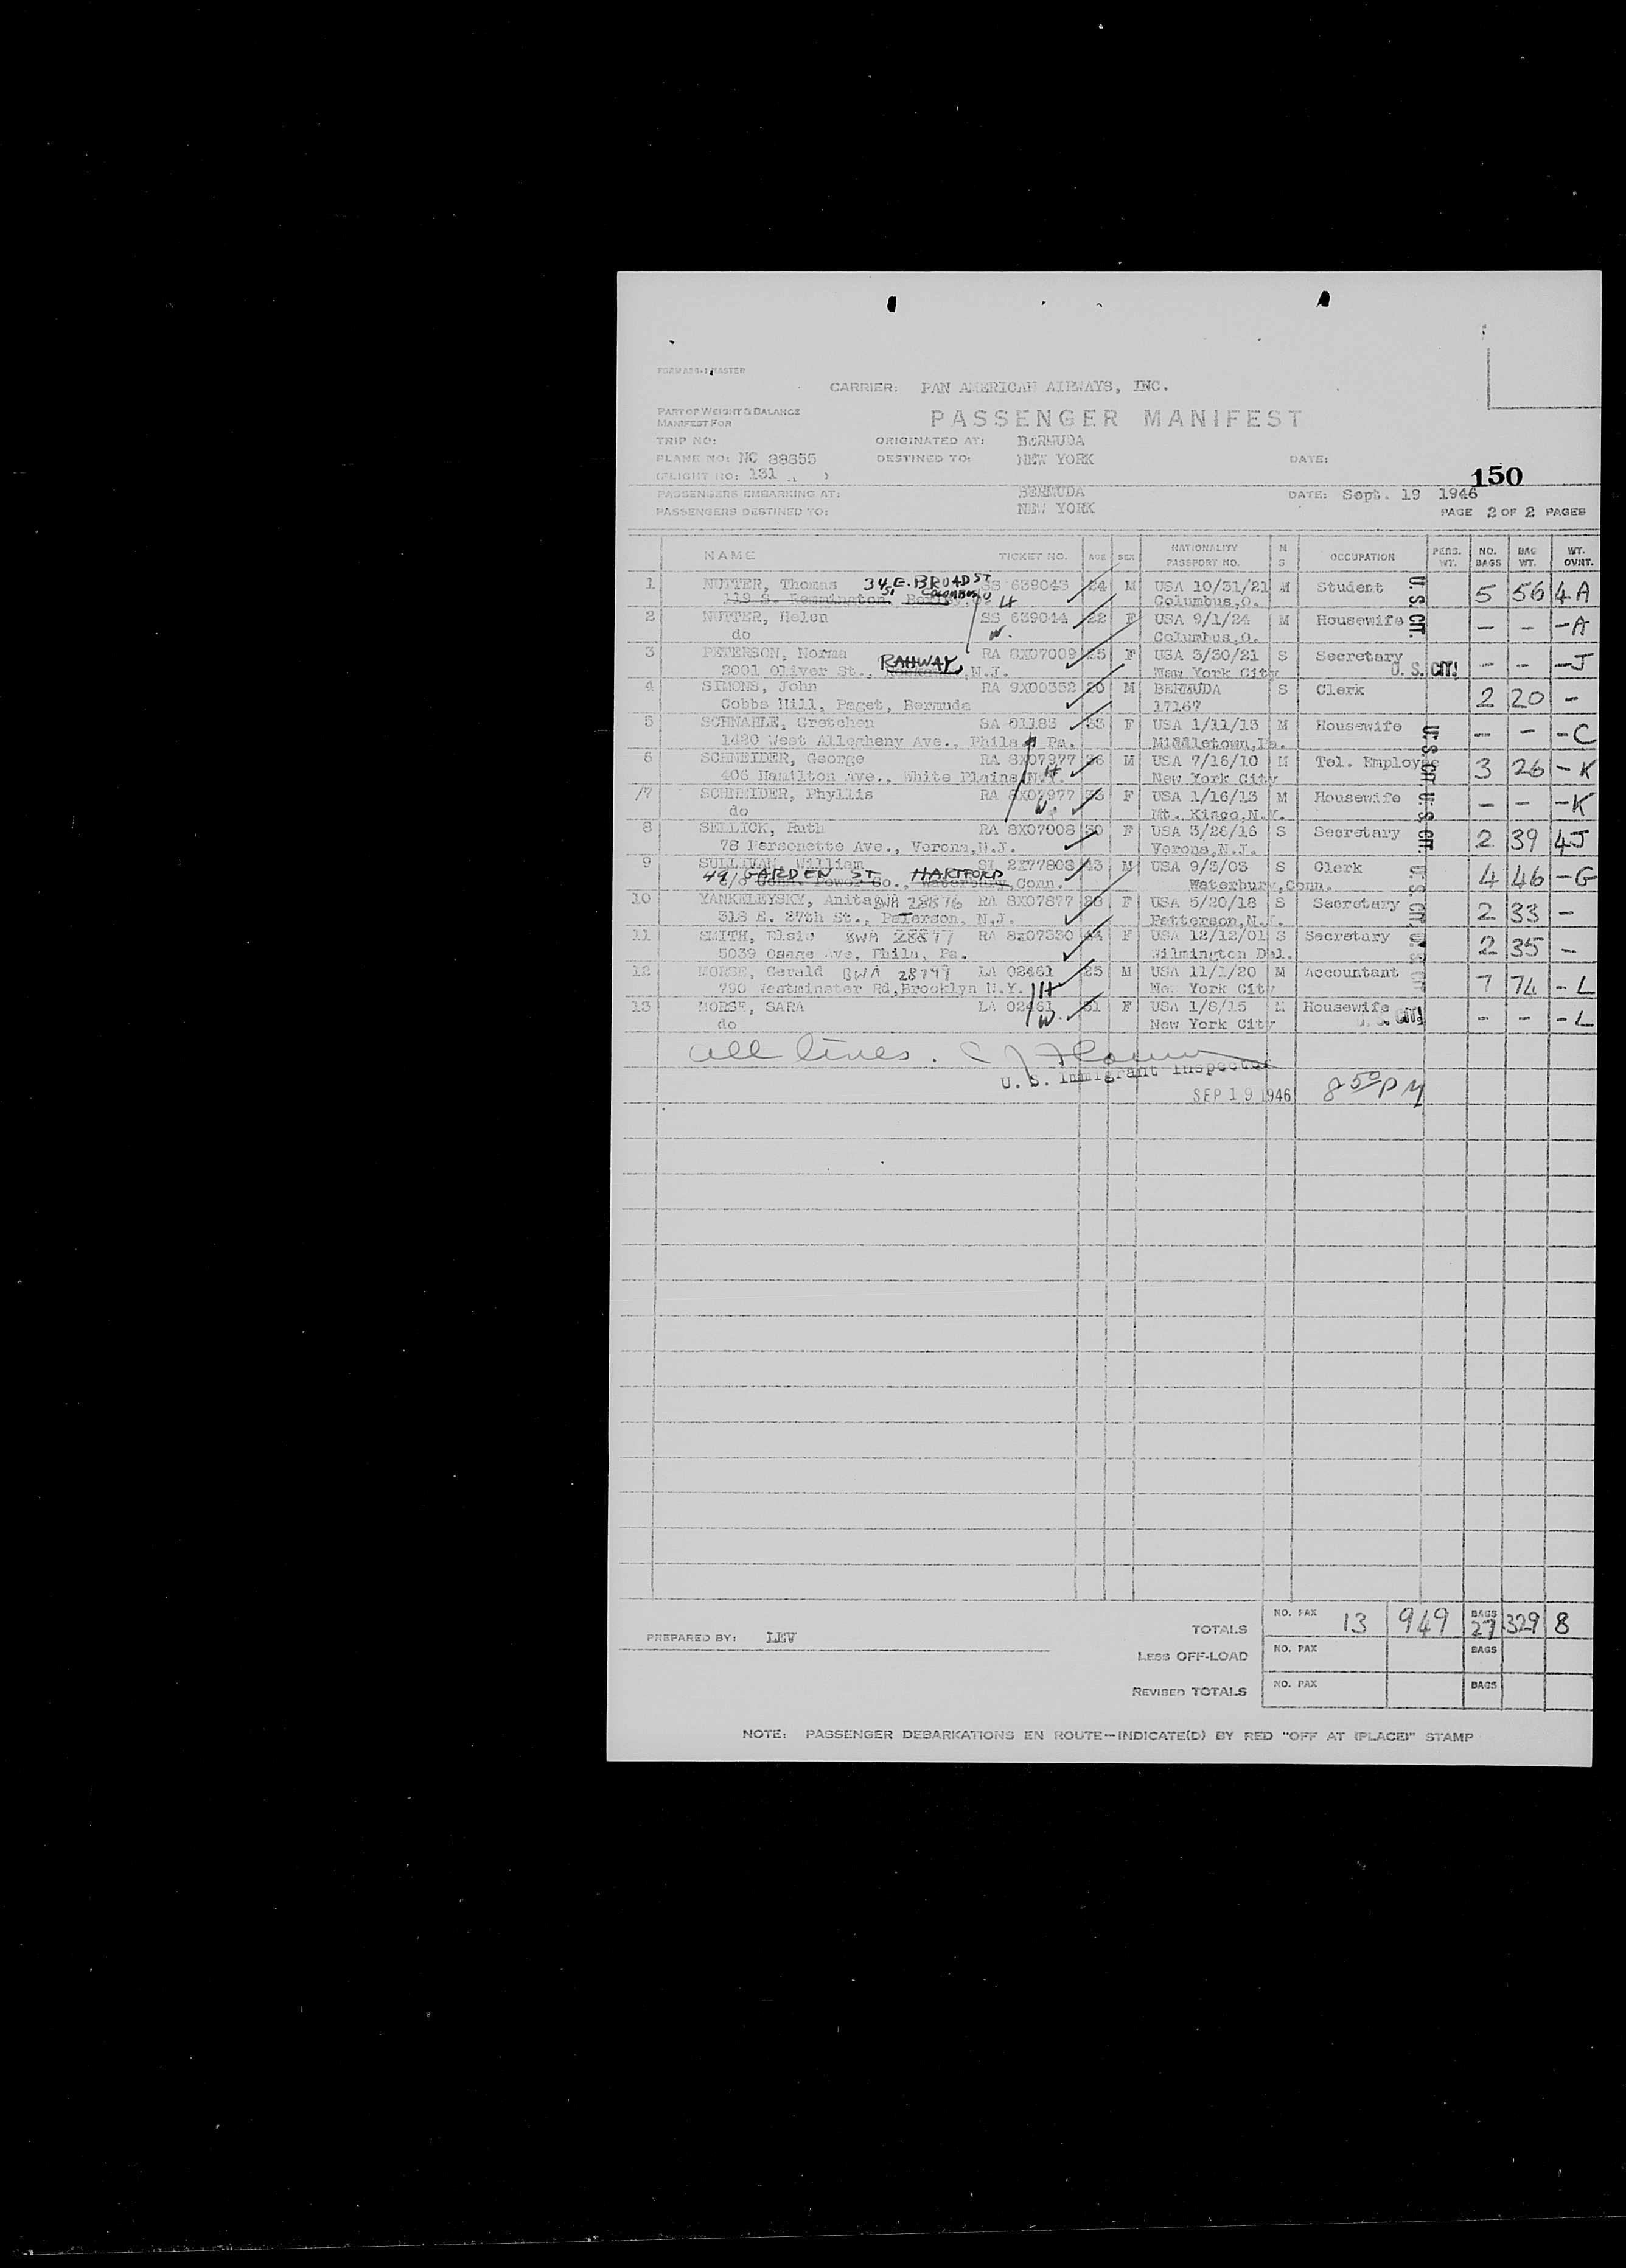 FORM A29-1 MASTER
CARRIER: PAN AMERICAN AIRWAYS, INC.
PART OF WEIGHT & BALANCE
MANIFEST FOR
PASSENGER MANIFEST
TRIP NO: ORIGINATED AT: BERMUDA
PLANE NO: NC 88855 DESTINED TO: NEW YORK DATE:
(FLIGHT NO: 131 ) 150
PASSENGERS EMBARKING AT: BERMUDA DATE: Sept. 19 1946
PASSENGERS DESTINED TO: NEW YORK PAGE 2 OF 2 PAGES
NAME TICKET NO. AGE SEX NATIONALITY PASSPORT NO. M S OCCUPATION PERS. WT. NO. BAGS BAG WT. WT. OVNT.
1 NUTTER, Thomas 34 E. BROAD ST SS 639043 24 M USA 10/31/21 M Student U.S. CIT. 5 56 4 A
119 S. Remmington, COLUMBUS O H Columbus,O.
2 NUTTER, Helen SS 639044 22 F USA 9/1/24 M Housewife - - - A
do W. Columbus,O.
3 PETERSON, Norma RA 8X07009 25 F USA 3/30/21 S Secretary - - - J
2001 Oliver St., RAHWAY, N.J. New York City U. S. CIT!
4 SIMONS, John RA 9X00352 20 M BERMUDA S Clerk 2 20 -
Cobbs Hill, Paget, Bermuda 17167
5 SCHNABLE, Gretchen SA 01183 33 F USA 1/11/13 M Housewife - - - C
1420 West Allegheny Ave., Phila Pa. Middletown,Pa.
6 SCHNEIDER, George RA 8X07977 36 M USA 7/16/10 M Tel. Employee 3 26 - K
406 Hamilton Ave., White Plains,N.Y. H New York City
7 SCHNEIDER, Phyllis RA 8X07977 33 F USA 1/16/13 M Housewife - - - K
do W. Mt. Kisco,N.Y.
8 SELLICK, Ruth RA 8X07008 30 F USA 3/26/16 S Secretary 2 39 4 J
78 Personette Ave., Verona,N.J. Verona,N.J.
9 SULLIVAN, William SI 2X77808 43 M USA 9/3/03 S Clerk 4 46 - G
49 GARDEN ST HARTFORD c/o Conn. Power Co., Waterbury,Conn. Waterbury,Conn.
10 YANKELEYSKY, Anita BWA 28876 RA 8X07877 28 F USA 5/20/18 S Secretary 2 33 -
318 E. 27th St., Paterson, N.J. Patterson,N.J.
11 SMITH, Elsie BWA 28877 RA 8x07330 44 F USA 12/12/01 S Secretary 2 35 -
5039 Osage Ave, Phila, Pa. Wilmington Del.
12 MORSE, Gerald BWA 28747 LA 02461 25 M USA 11/1/20 M Accountant 7 74 - L
790 Westminster Rd,Brooklyn N.Y. H New York City
13 MORSE, SARA LA 02461 31 F USA 1/8/15 M Housewife - - - L
do W. New York City U. S. CIT!
all lines.
U. S. Immigrant Inspector
SEP 19 1946 8 50 PM
TOTALS NO. PAX 13 949 BAGS 27 329 8
PREPARED BY: LEV
LESS OFF-LOAD NO. PAX BAGS
REVISED TOTALS NO. PAX BAGS
NOTE: PASSENGER DEBARKATIONS EN ROUTE—INDICATE(D) BY RED "OFF AT (PLACE)" STAMP